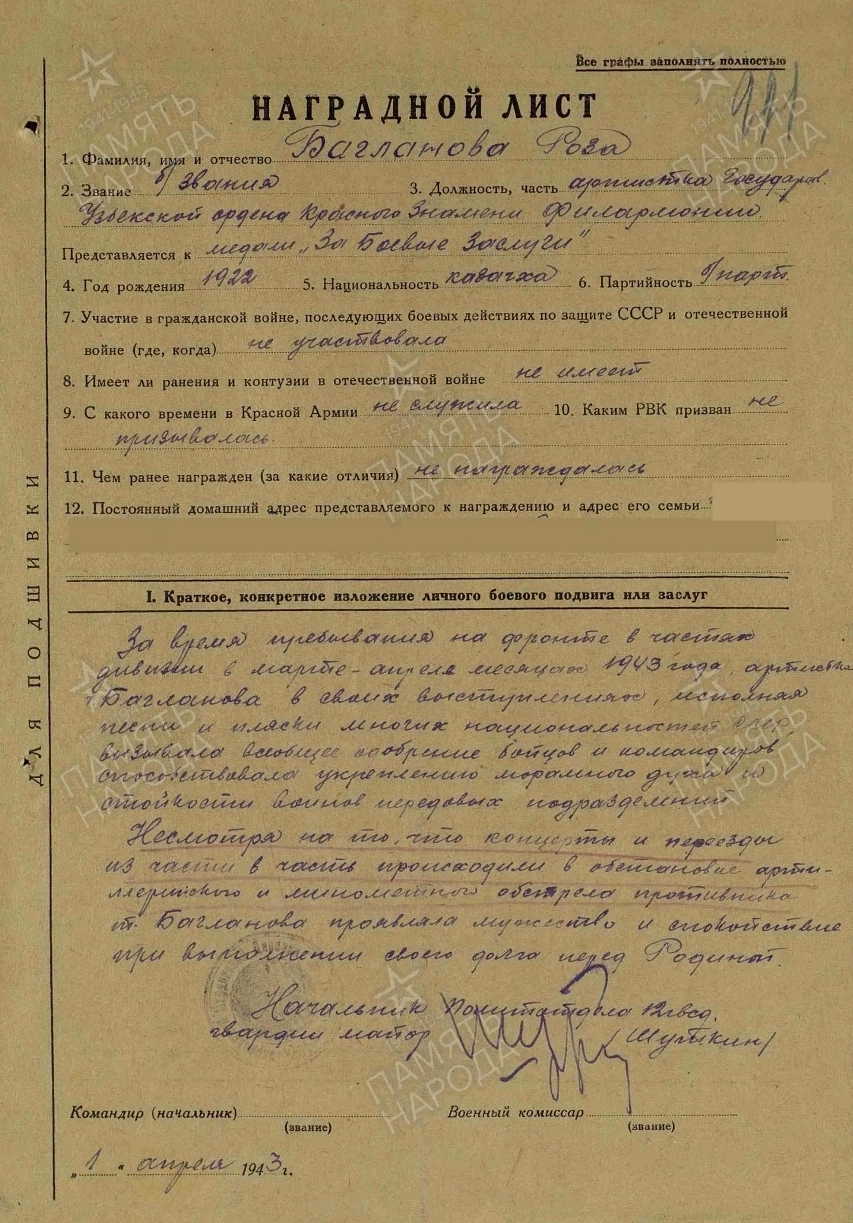 Все графы заполнять полностью
НАГРАДНОЙ ЛИСТ
1. Фамилия, имя и отчество Багланова Роза
2. Звание б/звания 3. Должность, часть артистка Государств.
Узбекской ордена Красного Знамени Филармонии
Представляется к медали „За Боевые Заслуги"
4. Год рождения 1922 5. Национальность казачха 6. Партийность б/парт.
7. Участие в гражданской войне, последующих боевых действиях по защите СССР и отечественной
войне (где, когда) не участвовала
8. Имеет ли ранения и контузии в отечественной войне не имеет
9. С какого времени в Красной Армии не служила 10. Каким РВК призван не
призывалась.
11. Чем ранее награжден (за какие отличия) не награждалась
12. Постоянный домашний адрес представляемого к награждению и адрес его семьи
I. Краткое, конкретное изложение личного боевого подвига или заслуг
За время пребывания на фронте в частях
дивизии в марте-апреле месяцах 1943 года, артистка
Багланова в своих выступлениях, исполняя
песни и пляски многих национальностей СССР,
вызывала всеобщее одобрение бойцов и командиров,
способствовала укреплению морального духа и
стойкости воинов передовых подразделений.
Несмотря на то, что концерты и переезды
из части в часть происходили в обстановке арти-
ллерийского и минометного обстрела противника
т. Багланова проявляла мужество и спокойствие
при выполнении своего долга перед Родиной.
Начальник Политотдела 12гвсд.
гвардии майор /Шуткин/
Командир (начальник) Военный комиссар
(звание) (звание)
„1" апреля 1943 г.
ДЛЯ ПОДШИВКИ
ПАМЯТЬ НАРОДА
1941-1945